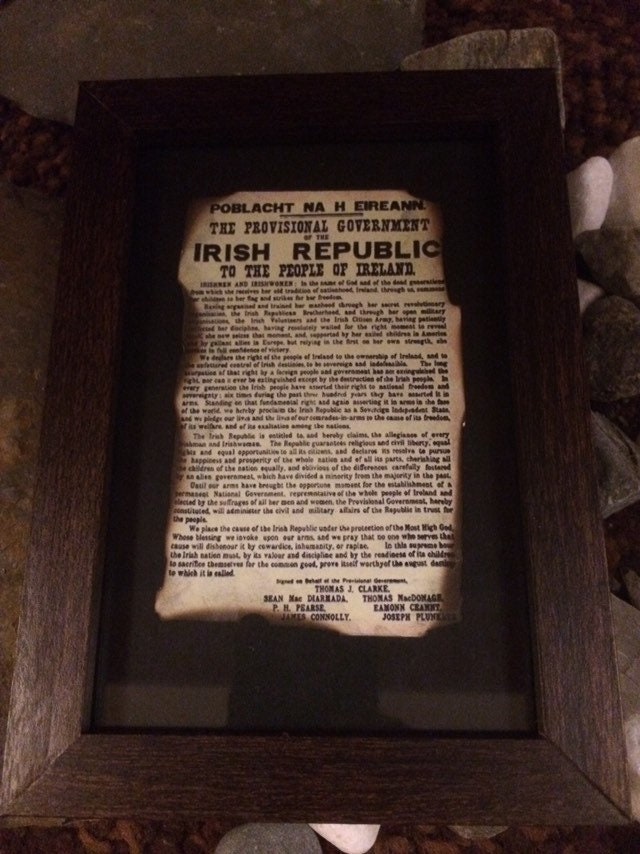 POBLACHT NA H EIREANN.
THE PROVISIONAL GOVERNMENT
OF THE
IRISH REPUBLIC
TO THE PEOPLE OF IRELAND.
IRISHMEN AND IRISHWOMEN: In the name of God and of the dead generations
from which she receives her old tradition of nationhood, Ireland, through us, summons
her children to her flag and strikes for her freedom.
Having organised and trained her manhood through her secret revolutionary
organisation, the Irish Republican Brotherhood, and through her open military
organisations, the Irish Volunteers and the Irish Citizen Army, having patiently
perfected her discipline, having resolutely waited for the right moment to reveal
she now seizes that moment, and, supported by her exiled children in America
by gallant allies in Europe, but relying in the first on her own strength, she
in full confidence of victory.
We declare the right of the people of Ireland to the ownership of Ireland, and to
the unfettered control of Irish destinies, to be sovereign and indefeasible. The long
usurpation of that right by a foreign people and government has not extinguished the
right, nor can it ever be extinguished except by the destruction of the Irish people. In
every generation the Irish people have asserted their right to national freedom and
sovereignty; six times during the past three hundred years they have asserted it in
arms. Standing on that fundamental right and again asserting it in arms in the face
of the world, we hereby proclaim the Irish Republic as a Sovereign Independent State,
and we pledge our lives and the lives of our comrades-in-arms to the cause of its freedom,
of its welfare, and of its exaltation among the nations.
The Irish Republic is entitled to, and hereby claims, the allegiance of every
Irishman and Irishwoman. The Republic guarantees religious and civil liberty, equal
rights and equal opportunities to all its citizens, and declares its resolve to pursue
the happiness and prosperity of the whole nation and of all its parts, cherishing all
the children of the nation equally, and oblivious of the differences carefully fostered
by an alien government, which have divided a minority from the majority in the past.
Until our arms have brought the opportune moment for the establishment of a
permanent National Government, representative of the whole people of Ireland and
elected by the suffrages of all her men and women, the Provisional Government, hereby
constituted, will administer the civil and military affairs of the Republic in trust for
the people.
We place the cause of the Irish Republic under the protection of the Most High God,
Whose blessing we invoke upon our arms, and we pray that no one who serves that
cause will dishonour it by cowardice, inhumanity, or rapine. In this supreme hour
the Irish nation must, by its valour and discipline and by the readiness of its children
to sacrifice themselves for the common good, prove itself worthy of the august destiny
to which it is called.
Signed on Behalf of the Provisional Government,
THOMAS J. CLARKE.
SEAN Mac DIARMADA. THOMAS MacDONAGH.
P. H. PEARSE. EAMONN CEANNT.
JAMES CONNOLLY. JOSEPH PLUNKETT